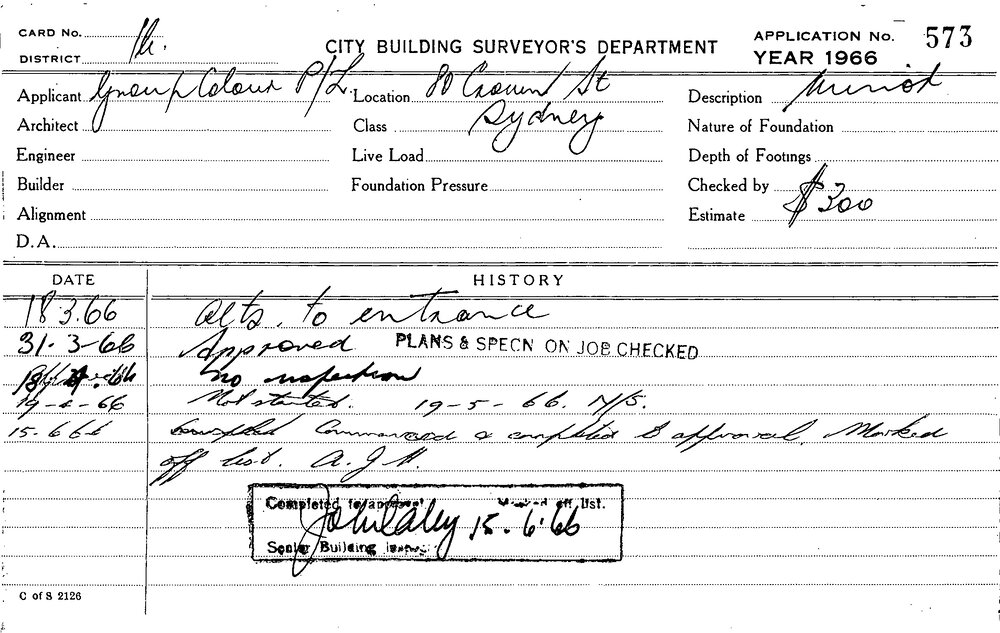 CARD No.
DISTRICT
CITY BUILDING SURVEYOR'S DEPARTMENT
APPLICATION No. 573
YEAR 1966
Applicant Group Colour P/L.
Location 80 Crown St
Sydney
Description Minor
Architect
Class
Nature of Foundation
Engineer
Live Load
Depth of Footings
Builder
Foundation Pressure
Checked by
Alignment
Estimate $300
D.A.
DATE HISTORY
18.3.66 Alts. to entrance
31-3-66 Approved PLANS & SPECN ON JOB CHECKED
No inspection
19-4-66 Not started. 19-5-66. N/S.
15.6.66 Commenced & completed to approval. Marked
off list. A.J.
Completed to approval Marked off list.
15.6.66
Senior Building
C of S 2126